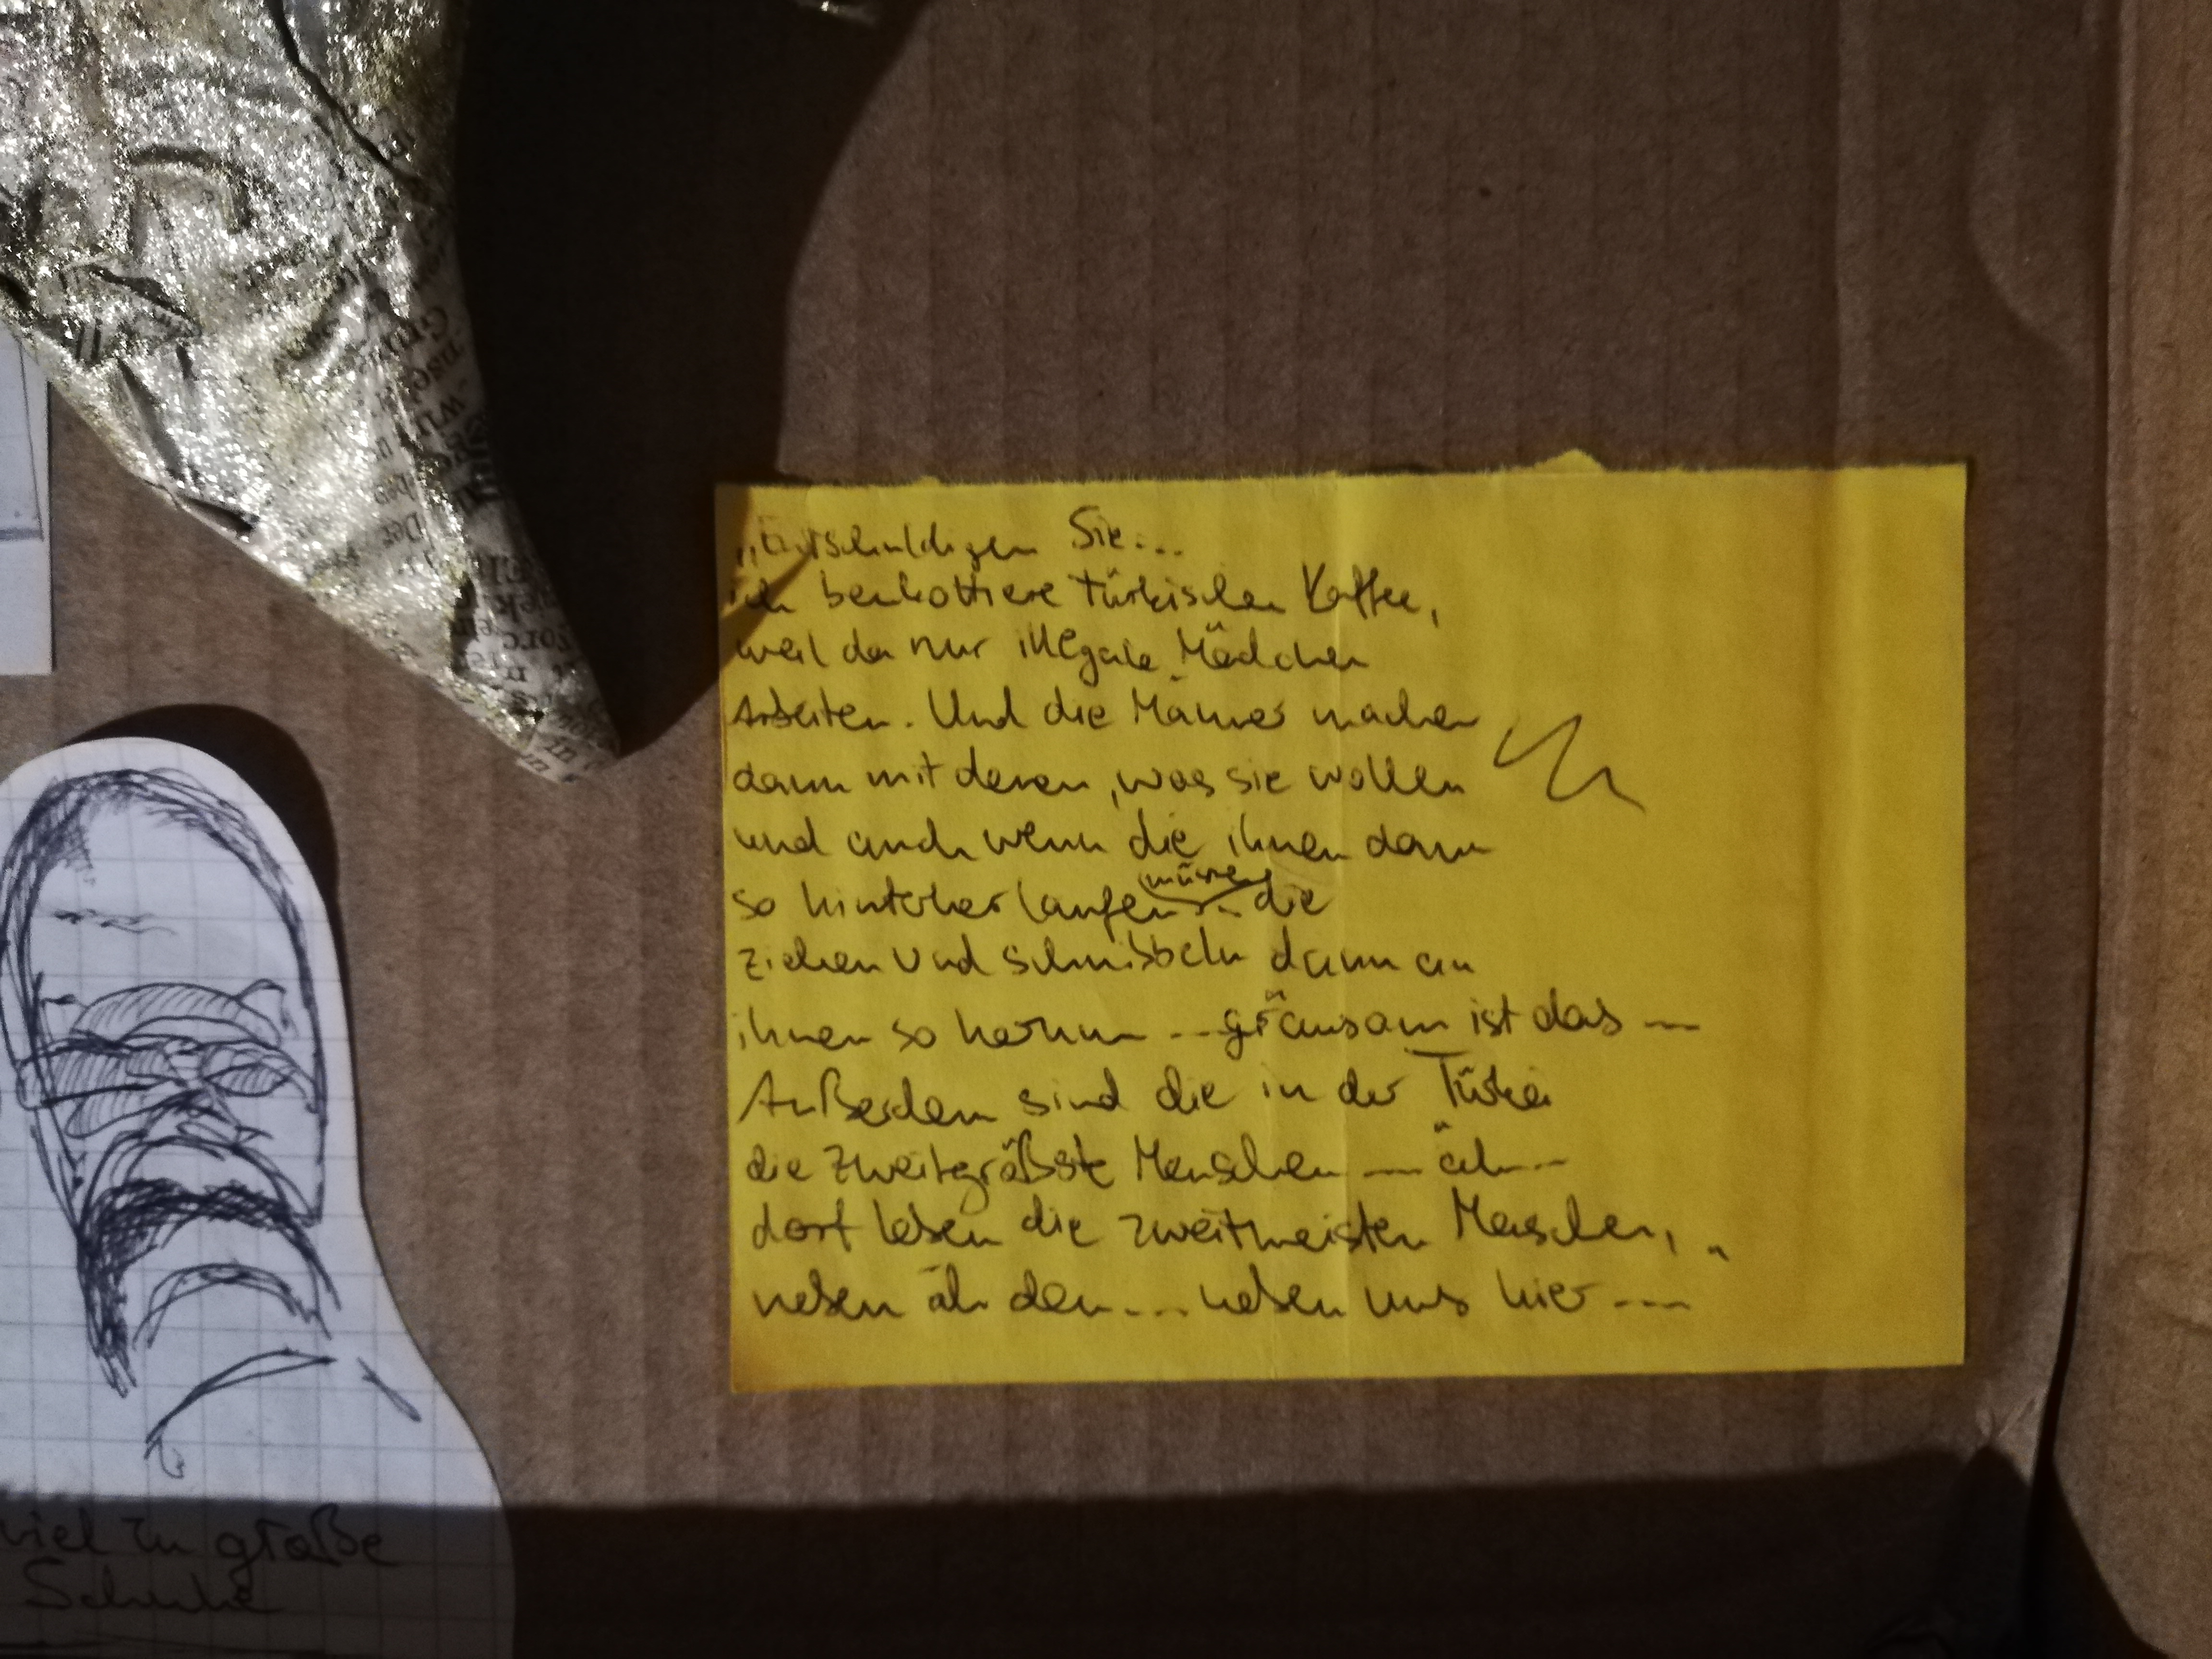 „Entschuldigen Sie...
ich beukottiere türkischen Kaffee,
weil da nur illegale Mädchen
Arbeiten. Und die Männer machen
dann mit denen, was sie wollen
und auch wenn die ihnen dann
so hinterher laufen müssen... die
ziehen und schnibbeln dann an
ihnen so herum --- gräusam ist das ---
Außerdem sind die in der Türkei
die zweitgrößste Menschen --- äh---
dort leben die zweitmeisten Menschen,
neben äh den... neben uns hier ---"
viel zu große
Schuhe